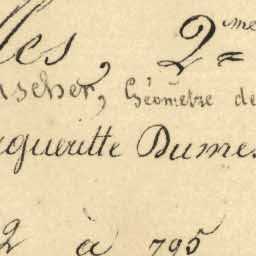 lles, 2me
ascher, Géomètre de
rgueritte Dumes
2 à 795